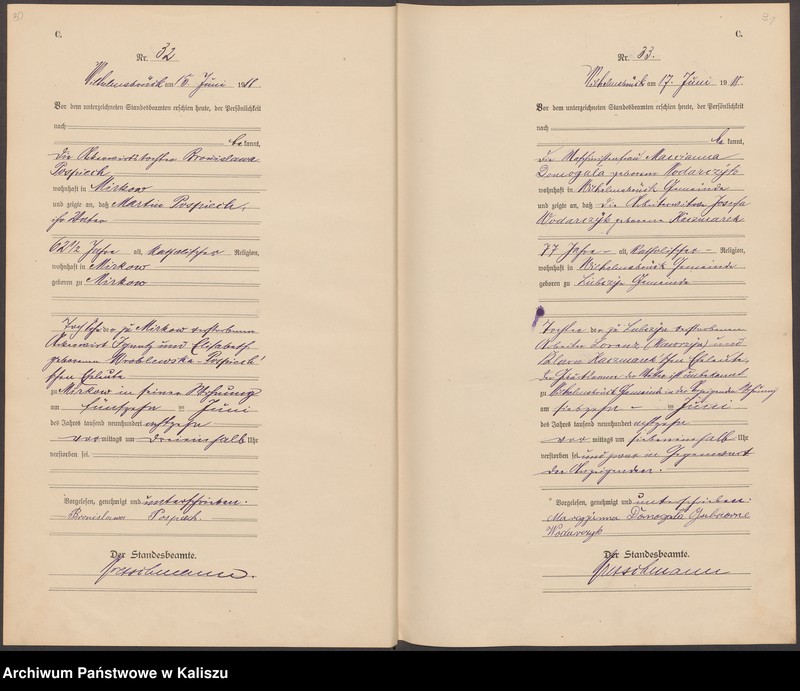 30
C.
Nr. 32
Wilhelmsbrück am 16. Juni 1918.
Vor dem unterzeichneten Standesbeamten erschien heute, der Persönlichkeit
nach
be kannt,
die Ackerwirtstochter Bronislawa
Pospiech
wohnhaft in Mirkow
und zeigte an, daß Martin Pospiech,
ihr Vater
62 1/2 Jahre alt, Katholischer Religion,
wohnhaft in Mirkow
geboren zu Mirkow
Sohn der zu Mirkow verstorbenen
Ackerwirt Ignatz und Elisabeth
geborenen Wroblewska-Pospiech'
schen Eheleute
zu Mirkow in seiner Wohnung
am fünfzehn ten Juni
des Jahres tausend neunhundert achtzehn
vor mittags um dreieinhalb Uhr
verstorben sei.
Vorgelesen, genehmigt und unterschrieben.
Bronislawa Pospiech.
Der Standesbeamte.
Kretschmann.
31
C.
Nr. 33.
Wilhelmsbrück am 17. Juni 1918.
Vor dem unterzeichneten Standesbeamten erschien heute, der Persönlichkeit
nach
be kannt,
die Maschinistenfrau Marianna
Domogala geborene Wodarczyk
wohnhaft in Wilhelmsbrück Gemeinde
und zeigte an, daß die Arbeiterwitwe Josefa
Wodarczyk geborene Kaczmarek
77 Jahre – alt, Katholischer – Religion,
wohnhaft in Wilhelmsbrück Gemeinde
geboren zu Gemeinde
Tochter der zu verstorbenen
Arbeiter Lorenz (Wawrzyn) und
Kaczmarek'schen Eheleute,
der der Mutter ist unbekannt
zu Wilhelmsbrück Gemeinde in der Anzeigenden Wohnung
am siebzehn – ten Juni
des Jahres tausend neunhundert achtzehn
vor mittags um siebeneinhalb Uhr
verstorben sei und zwar in Gegenwart
der Anzeigenden.
Vorgelesen, genehmigt und unterschrieben.
Maryjanna Domogala Geborene
Wodarczyk
Der Standesbeamte.
Kretschmann
Archiwum Państwowe w Kaliszu